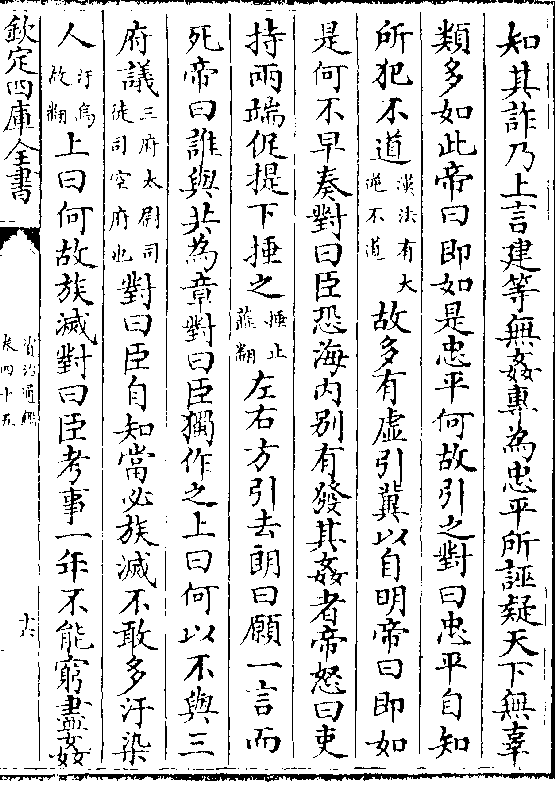 知其詐乃上言建等無姦專為忠平所誣疑天下無辜
類多如此帝曰即如是忠平何故引之對曰忠平自知
所犯不道漢法有大逆不道故多有虛引冀以自明帝曰即如
是何不早奏對曰臣恐海内别有發其姦者帝怒曰吏
持兩端促提下捶之捶止蘂翻左右方引去朗曰願一言而
死帝曰誰與共為章對曰臣獨作之上曰何以不與三
府議三府太尉司徒司空府也對曰臣自知當必族滅不敢多汙染
人汙烏故翻上曰何故族滅對曰臣考事一年不能窮盡姦
欽定四庫全書
資治通鑑
卷四十五
十六